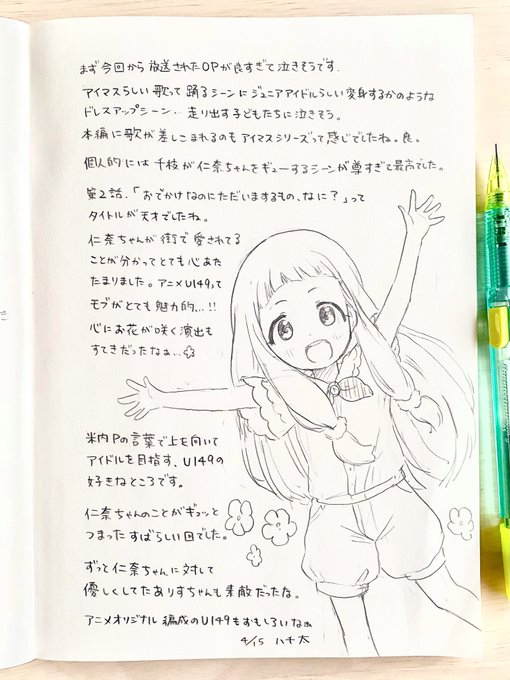 まず今回から放送されたOPが良すぎて泣きそうです.
アイマスらしい歌って踊るシーンにジュニアアイドルらしい変身するかのような
ドレスアップシーン…走り出す子どもたちに泣きそう。
本編に歌が差しこまれるのもアイマスシリーズって感じでしたね。良。
個人的には千枝が仁奈ちゃんをギューするシーンが尊すぎて最高でした。
第2話、「おでかけなのにただいまするもの、なに?」って
タイトルが天才でしたね。
仁奈ちゃんが街で愛されてる
ことが分かってとても心あた
たまりました。アニメU149って
モブがとても魅力的…!!
心にお花が咲く演出も
すてきだったなぁ…
米内Pの言葉で上を向いて
アイドルを目指す、U149の
好きなところです。
仁奈ちゃんのことがギュッと
つまったすばらしい回でした。
ずっと仁奈ちゃんに対して
優しくしてたありすちゃんも素敵だったな。
アニメオリジナル編成のU149もおもしろいなぁ
4/15 ハチ太